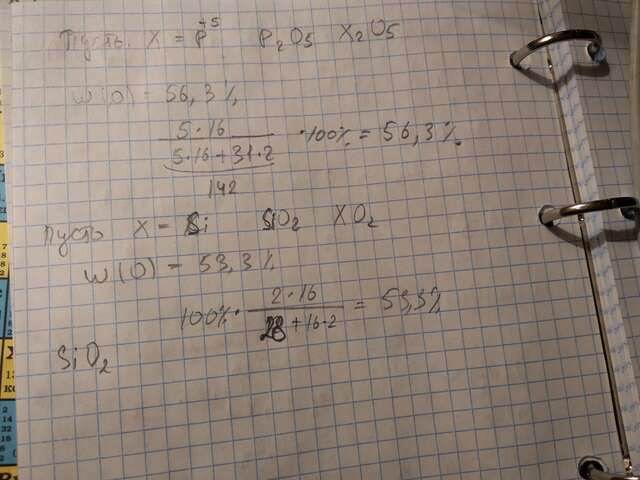 Пусть. X = P⁺⁵ P₂O₅ X₂O₅
w(O) = 56,3%
5·16 / (5·16+31·2) ·100% = 56,3%
142
Пусть X = Si SiO₂ XO₂
w(O) = 53,3%
100% · 2·16 / (28+16·2) = 53,3%
SiO₂